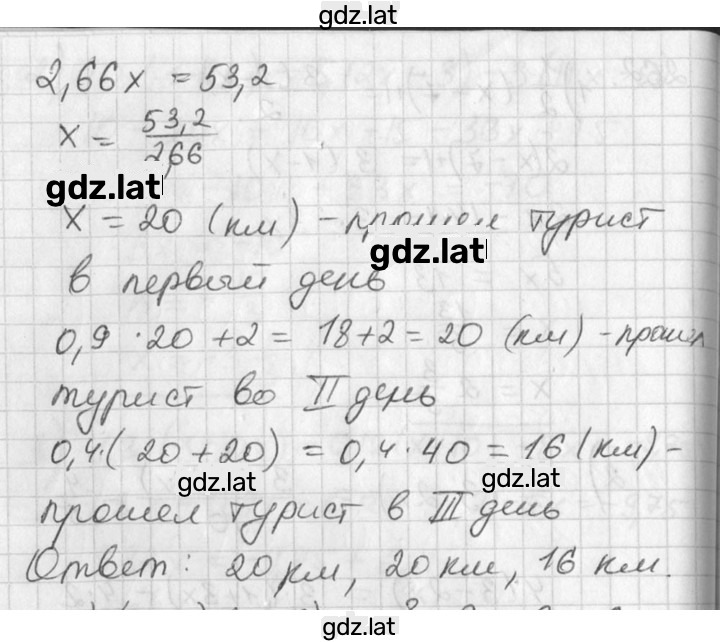 gdz.lat
2,66x = 53,2
x = 53,2/2,66
gdz.lat
x = 20 (км) - прошел турист
gdz.lat
в первый день
0,9 · 20 + 2 = 18 + 2 = 20 (км) - прошел
турист во II день
0,4 · (20 + 20) = 0,4 · 40 = 16 (км) -
gdz.lat gdz.lat
прошел турист в III день
Ответ: 20 км, 20 км, 16 км.
gdz.lat